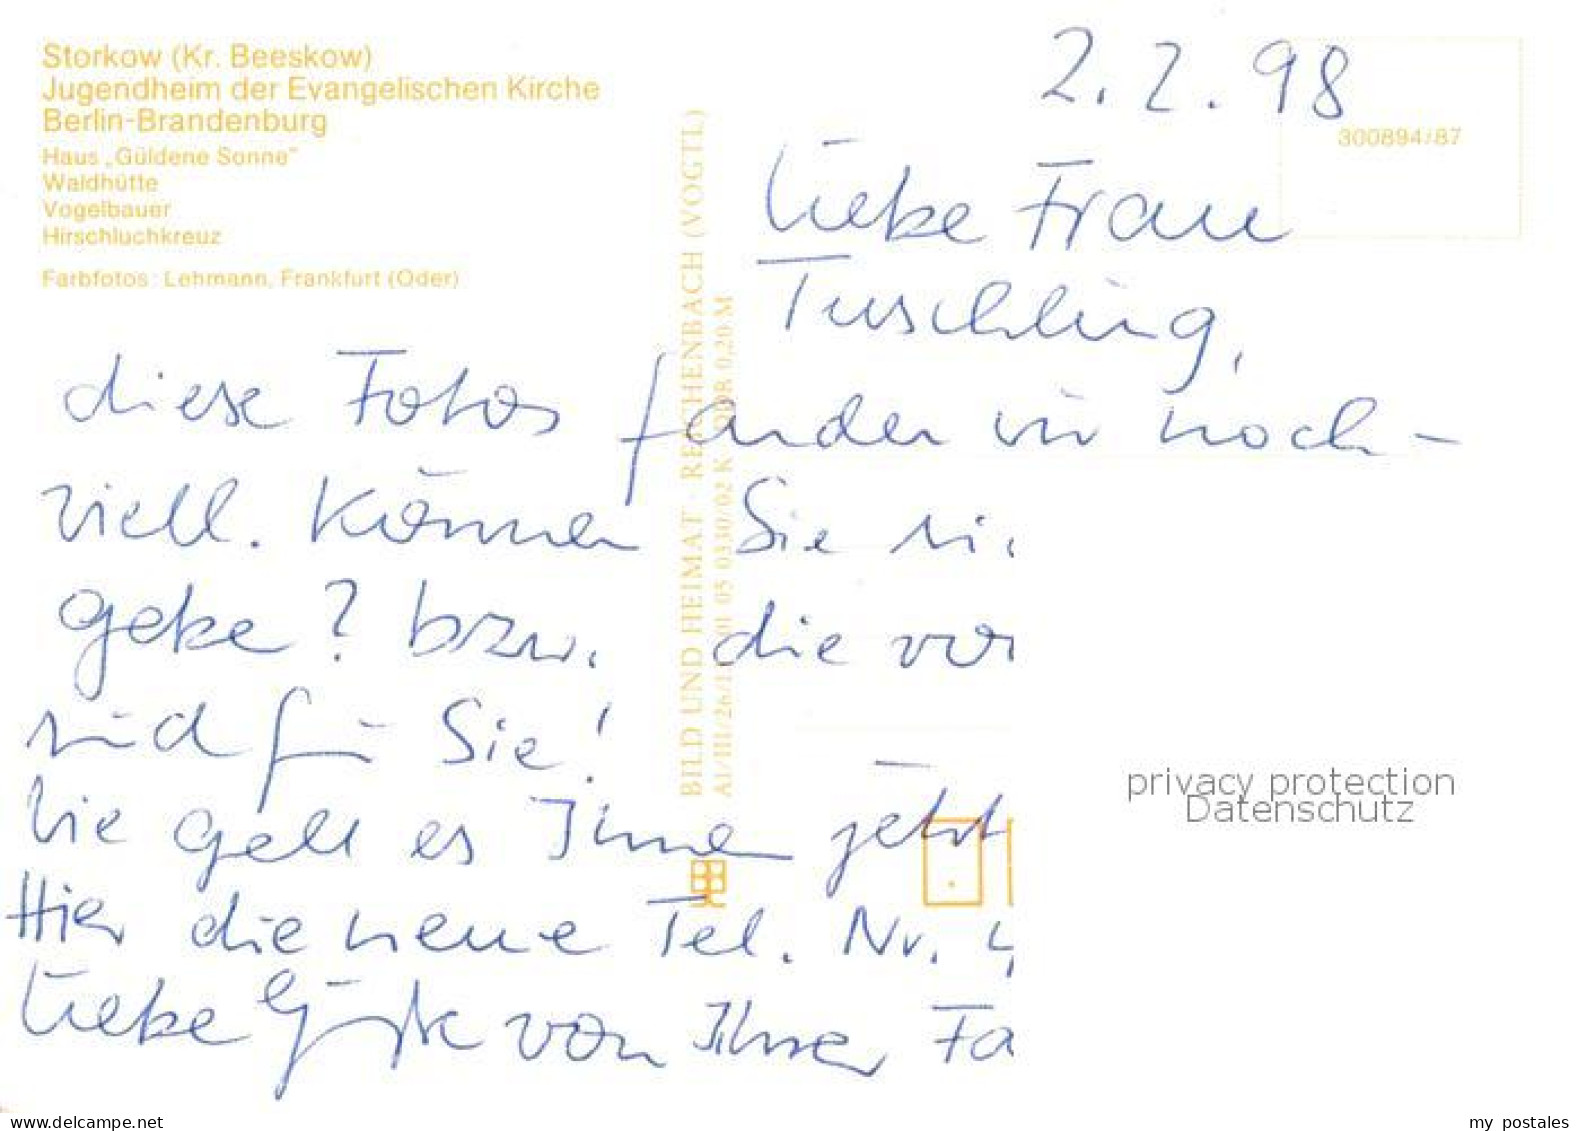 Storkow (Kr. Beeskow)
Jugendheim der Evangelischen Kirche
Berlin-Brandenburg
Haus „Güldene Sonne"
Waldhütte
Vogelbauer
Hirschluchkreuz
Farbfotos: Lehmann, Frankfurt (Oder)
BILD UND HEIMAT · REICHENBACH (VOGTL)
0330/02 K DDR 0,20 M
300894/87
2.2.98
Liebe Frau
Tuschling,
diese Fotos fanden wir noch –
viell. können Sie
gebe? bzw. die
sind für Sie!
Wie geht es Ihnen jetzt
Hier die neue Tel. Nr. 4
Liebe Grüße von Ihrer Fa
privacy protection
Datenschutz
www.delcampe.net
my_postales